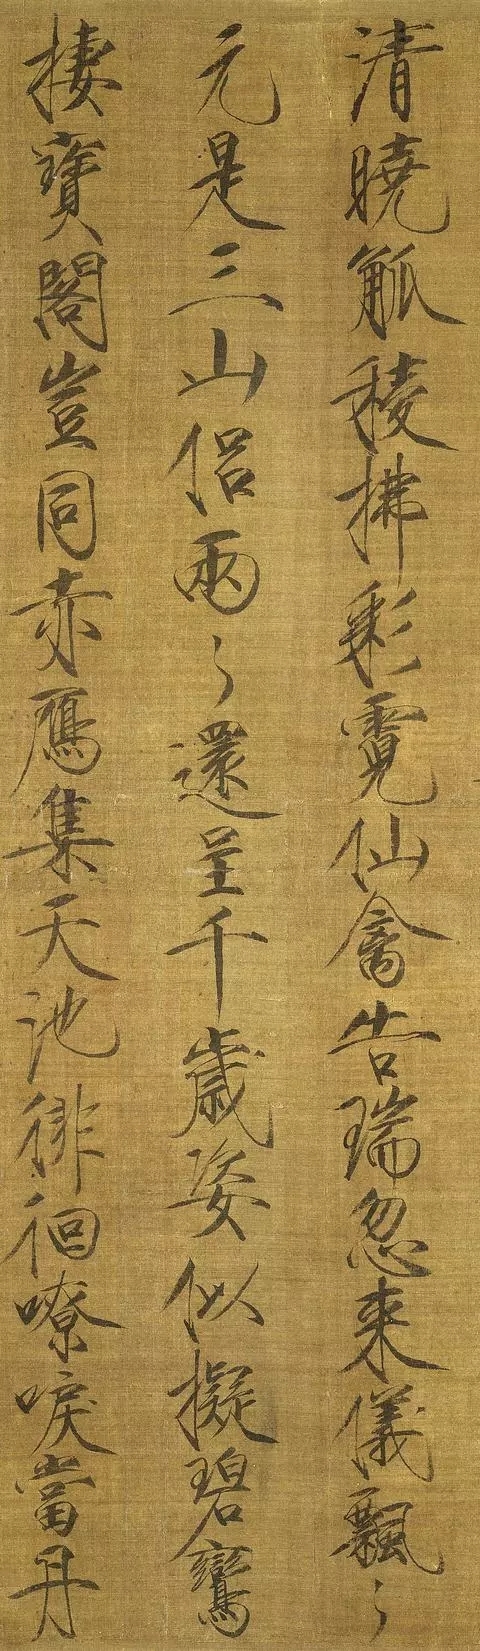 清曉觚稜拂彩霓仙禽告瑞忽来儀飄〻
元是三山侶兩〻還呈千歳姿似擬碧鸞
棲寶閣豈同赤鴈集天池徘徊嘹唳當丹